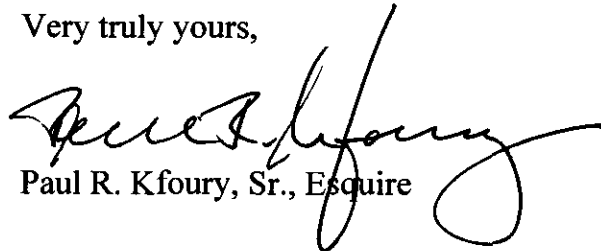 Very truly yours,
Paul R. Kfoury
Paul R. Kfoury, Sr., Esquire